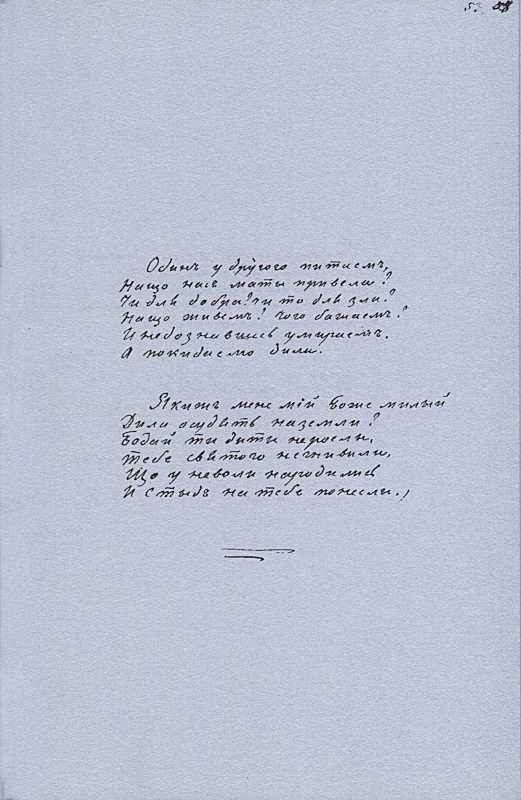 53 58
Одинъ у другого питаемъ,
Нащо насъ маты привела?
Чи для добра? чи то для зла?
Нащо живемъ? чого бажаемъ?
И недознавшись умираемъ.
А покидаємо дила.
Якижъ мене мій Боже милый
Дила осудять на земли?
Бодай ти диты не росли,
Тебе святого не гнивили,
Що у неволи народились
И стыдъ на тебе понесли.